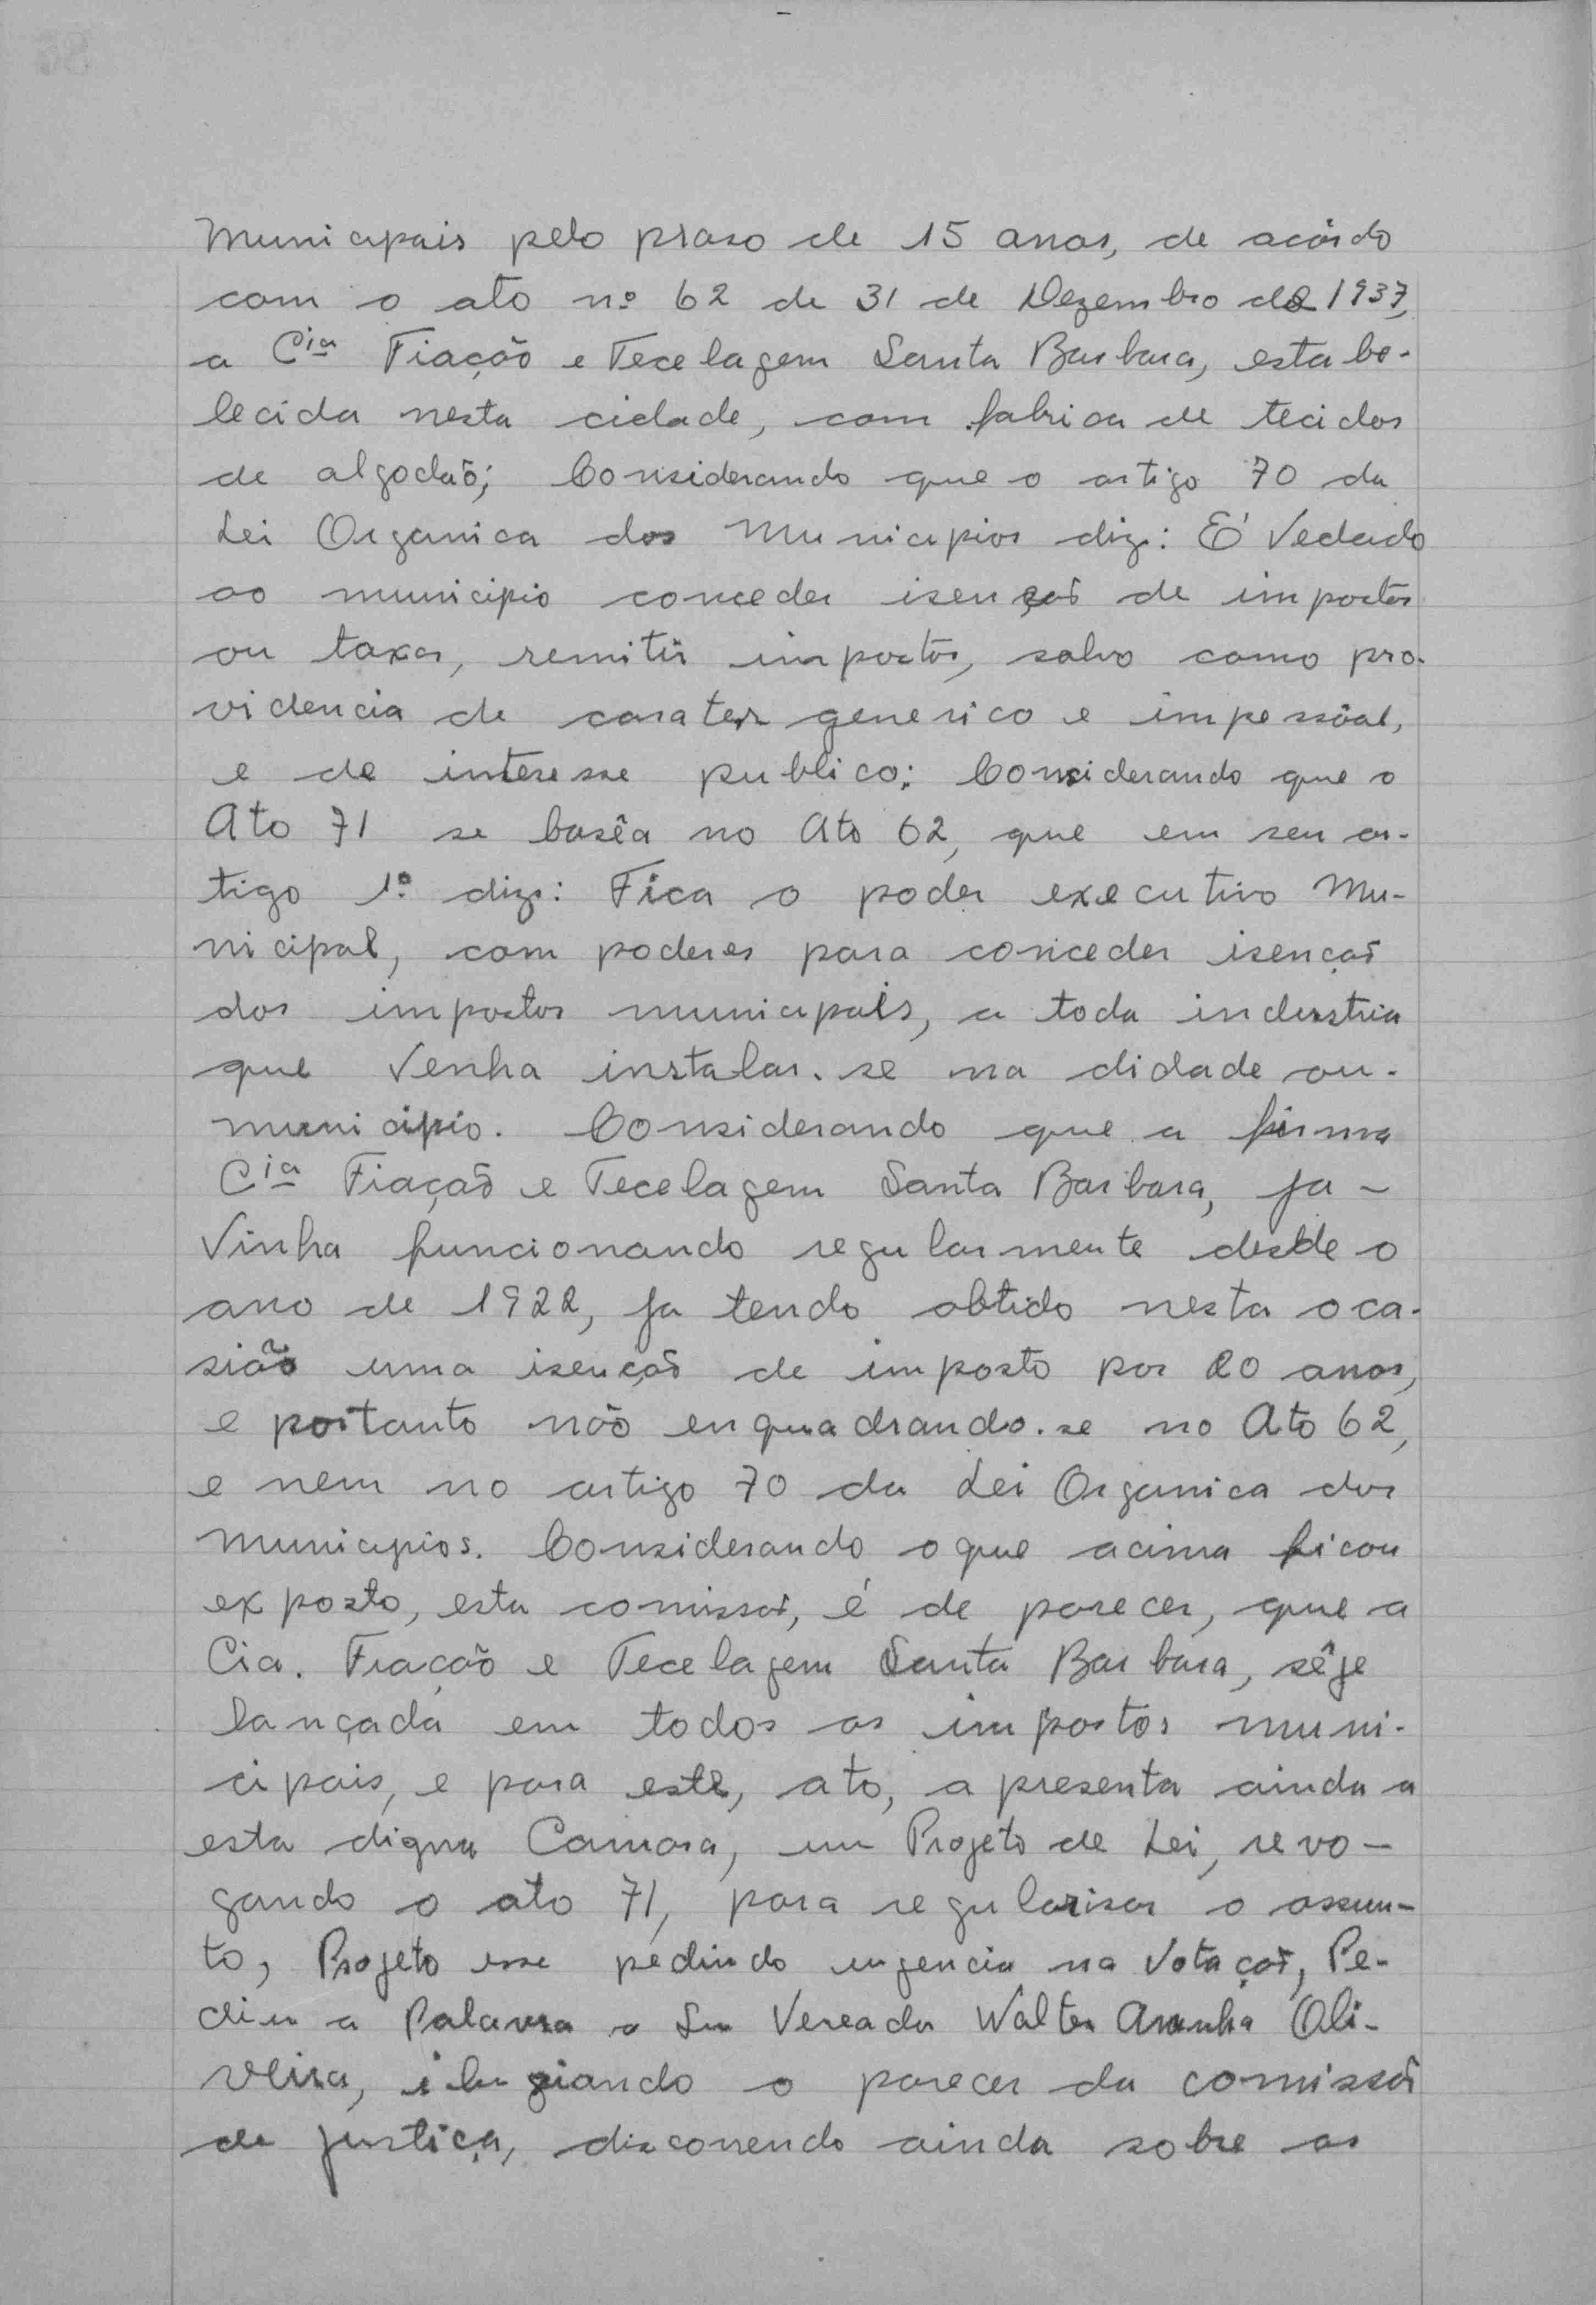 Municipais pelo praso de 15 anos, de acôrdo
com o ato nº 62 de 31 de Dezembro de 1937,
a Cia Fiação e Tecelagem Santa Barbara, estabe-
lecida nesta cidade, com fabrica de tecidos
de algodão; Considerando que o artigo 70 da
Lei Organica dos Municipios diz: É Vedado
ao municipio conceder isenção de impostos
ou taxas, remitir impostos, salvo como pro-
videncia de carater generico e impessôal,
e de interesse publico: Considerando que o
Ato 71 se basêa no Ato 62, que em seu ar-
tigo 1º diz: Fica o poder executivo Mu-
nicipal, com poderes para conceder isenção
dos impostos municipais, a toda industria
que Venha instalar-se na didade ou-
municipio. Considerando que a firma
Cia Fiação e Tecelagem Santa Barbara, ja-
Vinha funcionando regularmente desde o
ano de 1922, ja tendo obtido nesta oca-
sião uma isenção de imposto por 20 anos,
e portanto não enquadrando-se no Ato 62,
e nem no artigo 70 da Lei Organica dos
Municipios. Considerando o que acima ficou
exposto, esta comissão, é de parecer, que a
Cia. Fiação e Tecelagem Santa Barbara, sêje
lançada em todos os impostos muni-
cipais, e para este, ato, apresenta ainda a
esta digna Camara, um Projeto de Lei, revo-
gando o ato 71, para regularisar o assun-
to, Projeto esse pedindo urgencia na Votação, Pe-
diu a Palavra o Snr Vereador Walter Aranha Oli-
veira, elugiando o parecer da comissão
de justiça, discorrendo ainda sobre as